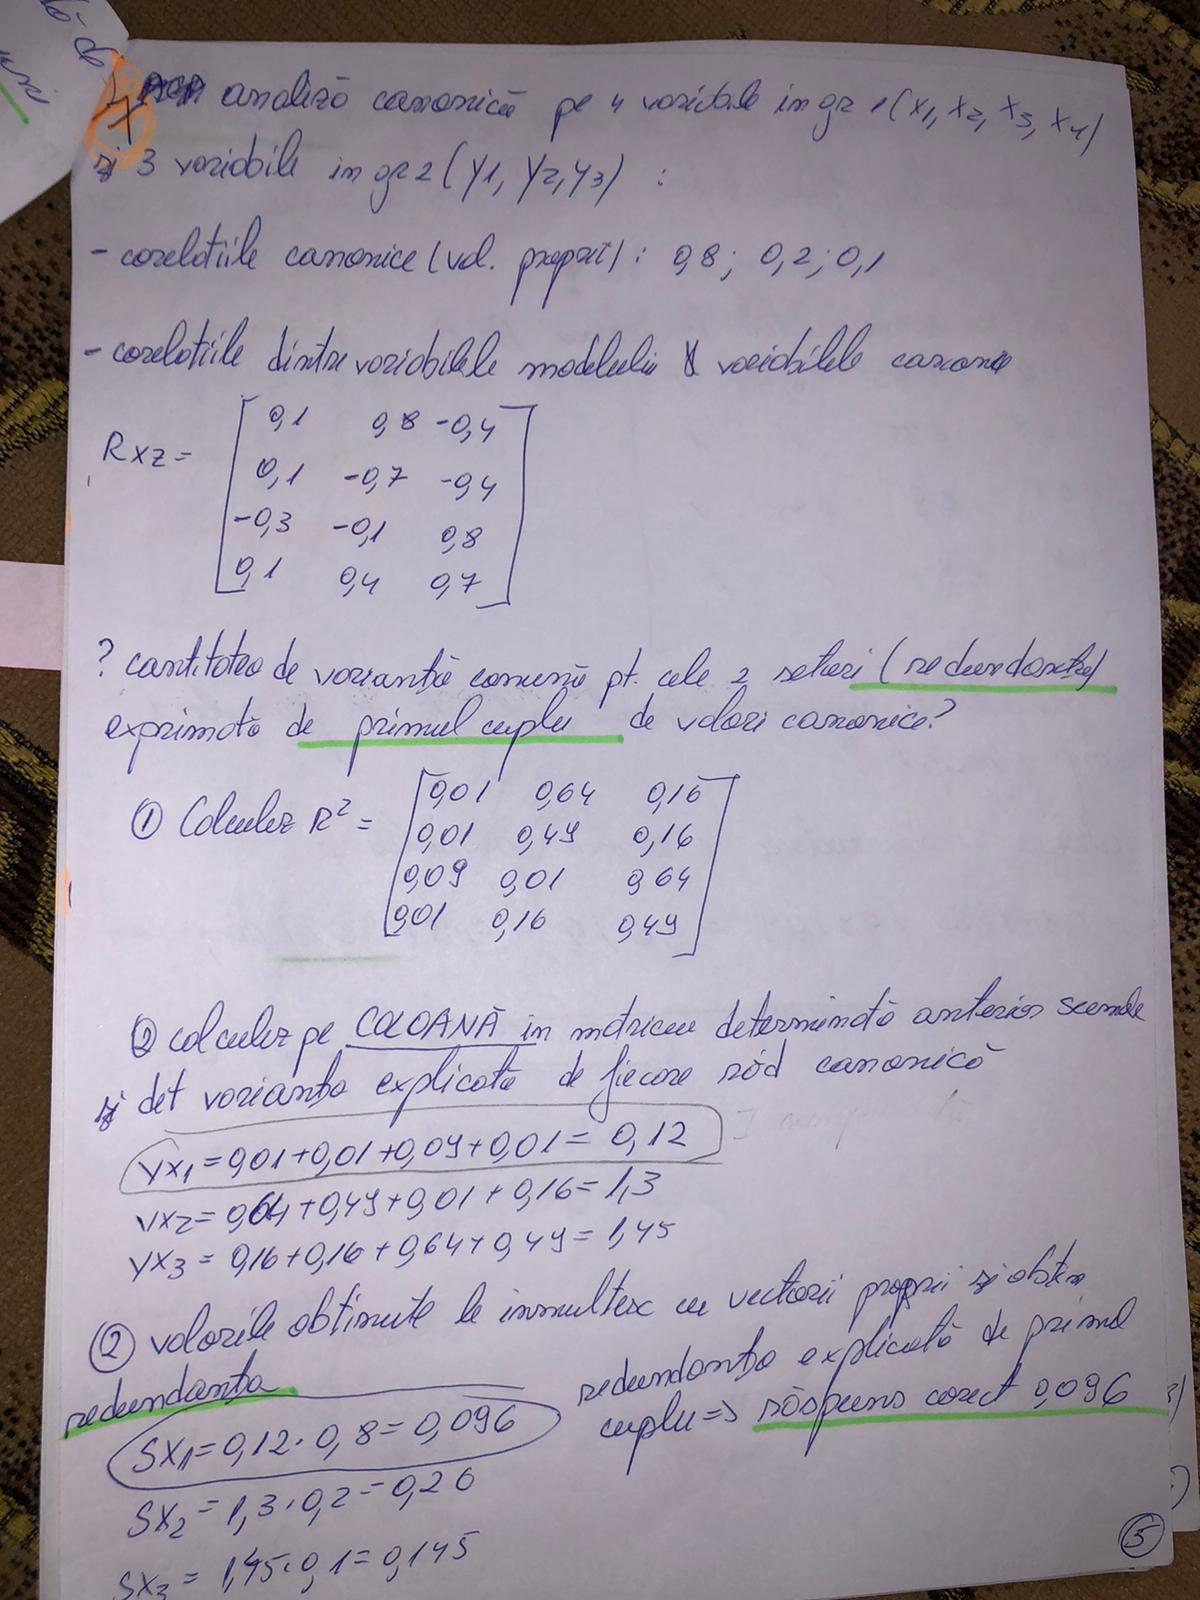 7 analiză canonică pe 4 variabile in gr 1 (x1, x2, x3, x4)
și 3 variabile in gr 2 (y1, y2, y3) :
- corelatiile canonice (val. proprii) : 0,8; 0,2; 0,1
- corelatiile dintre variabilele modelului & variabilele canonice
0,1 0,8 -0,4
Rxz =
0,1 -0,7 -0,4
-0,3 -0,1 0,8
0,1 0,4 0,7
? cantitatea de varianță comună pt. cele 2 seturi (redundanta)
exprimată de primul cuplu de valori canonice?
0,01 0,64 0,16
① Calculez R² =
0,01 0,49 0,16
0,09 0,01 0,64
0,01 0,16 0,49
② calculez pe COLOANĂ in matricea determinată anterior sumele
și det varianța explicată de fiecare răd canonică
VX1 = 0,01 + 0,01 + 0,09 + 0,01 = 0,12
VX2 = 0,64 + 0,49 + 0,01 + 0,16 = 1,3
VX3 = 0,16 + 0,16 + 0,64 + 0,49 = 1,45
② valorile obtinute le inmultesc cu vectorii proprii și obtin
redundanta
SX1 = 0,12 . 0,8 = 0,096
redundanța explicată de primul
cuplu => răspuns corect 0,096
SX2 = 1,3 . 0,2 = 0,26
SX3 = 1,45 . 0,1 = 0,145
5